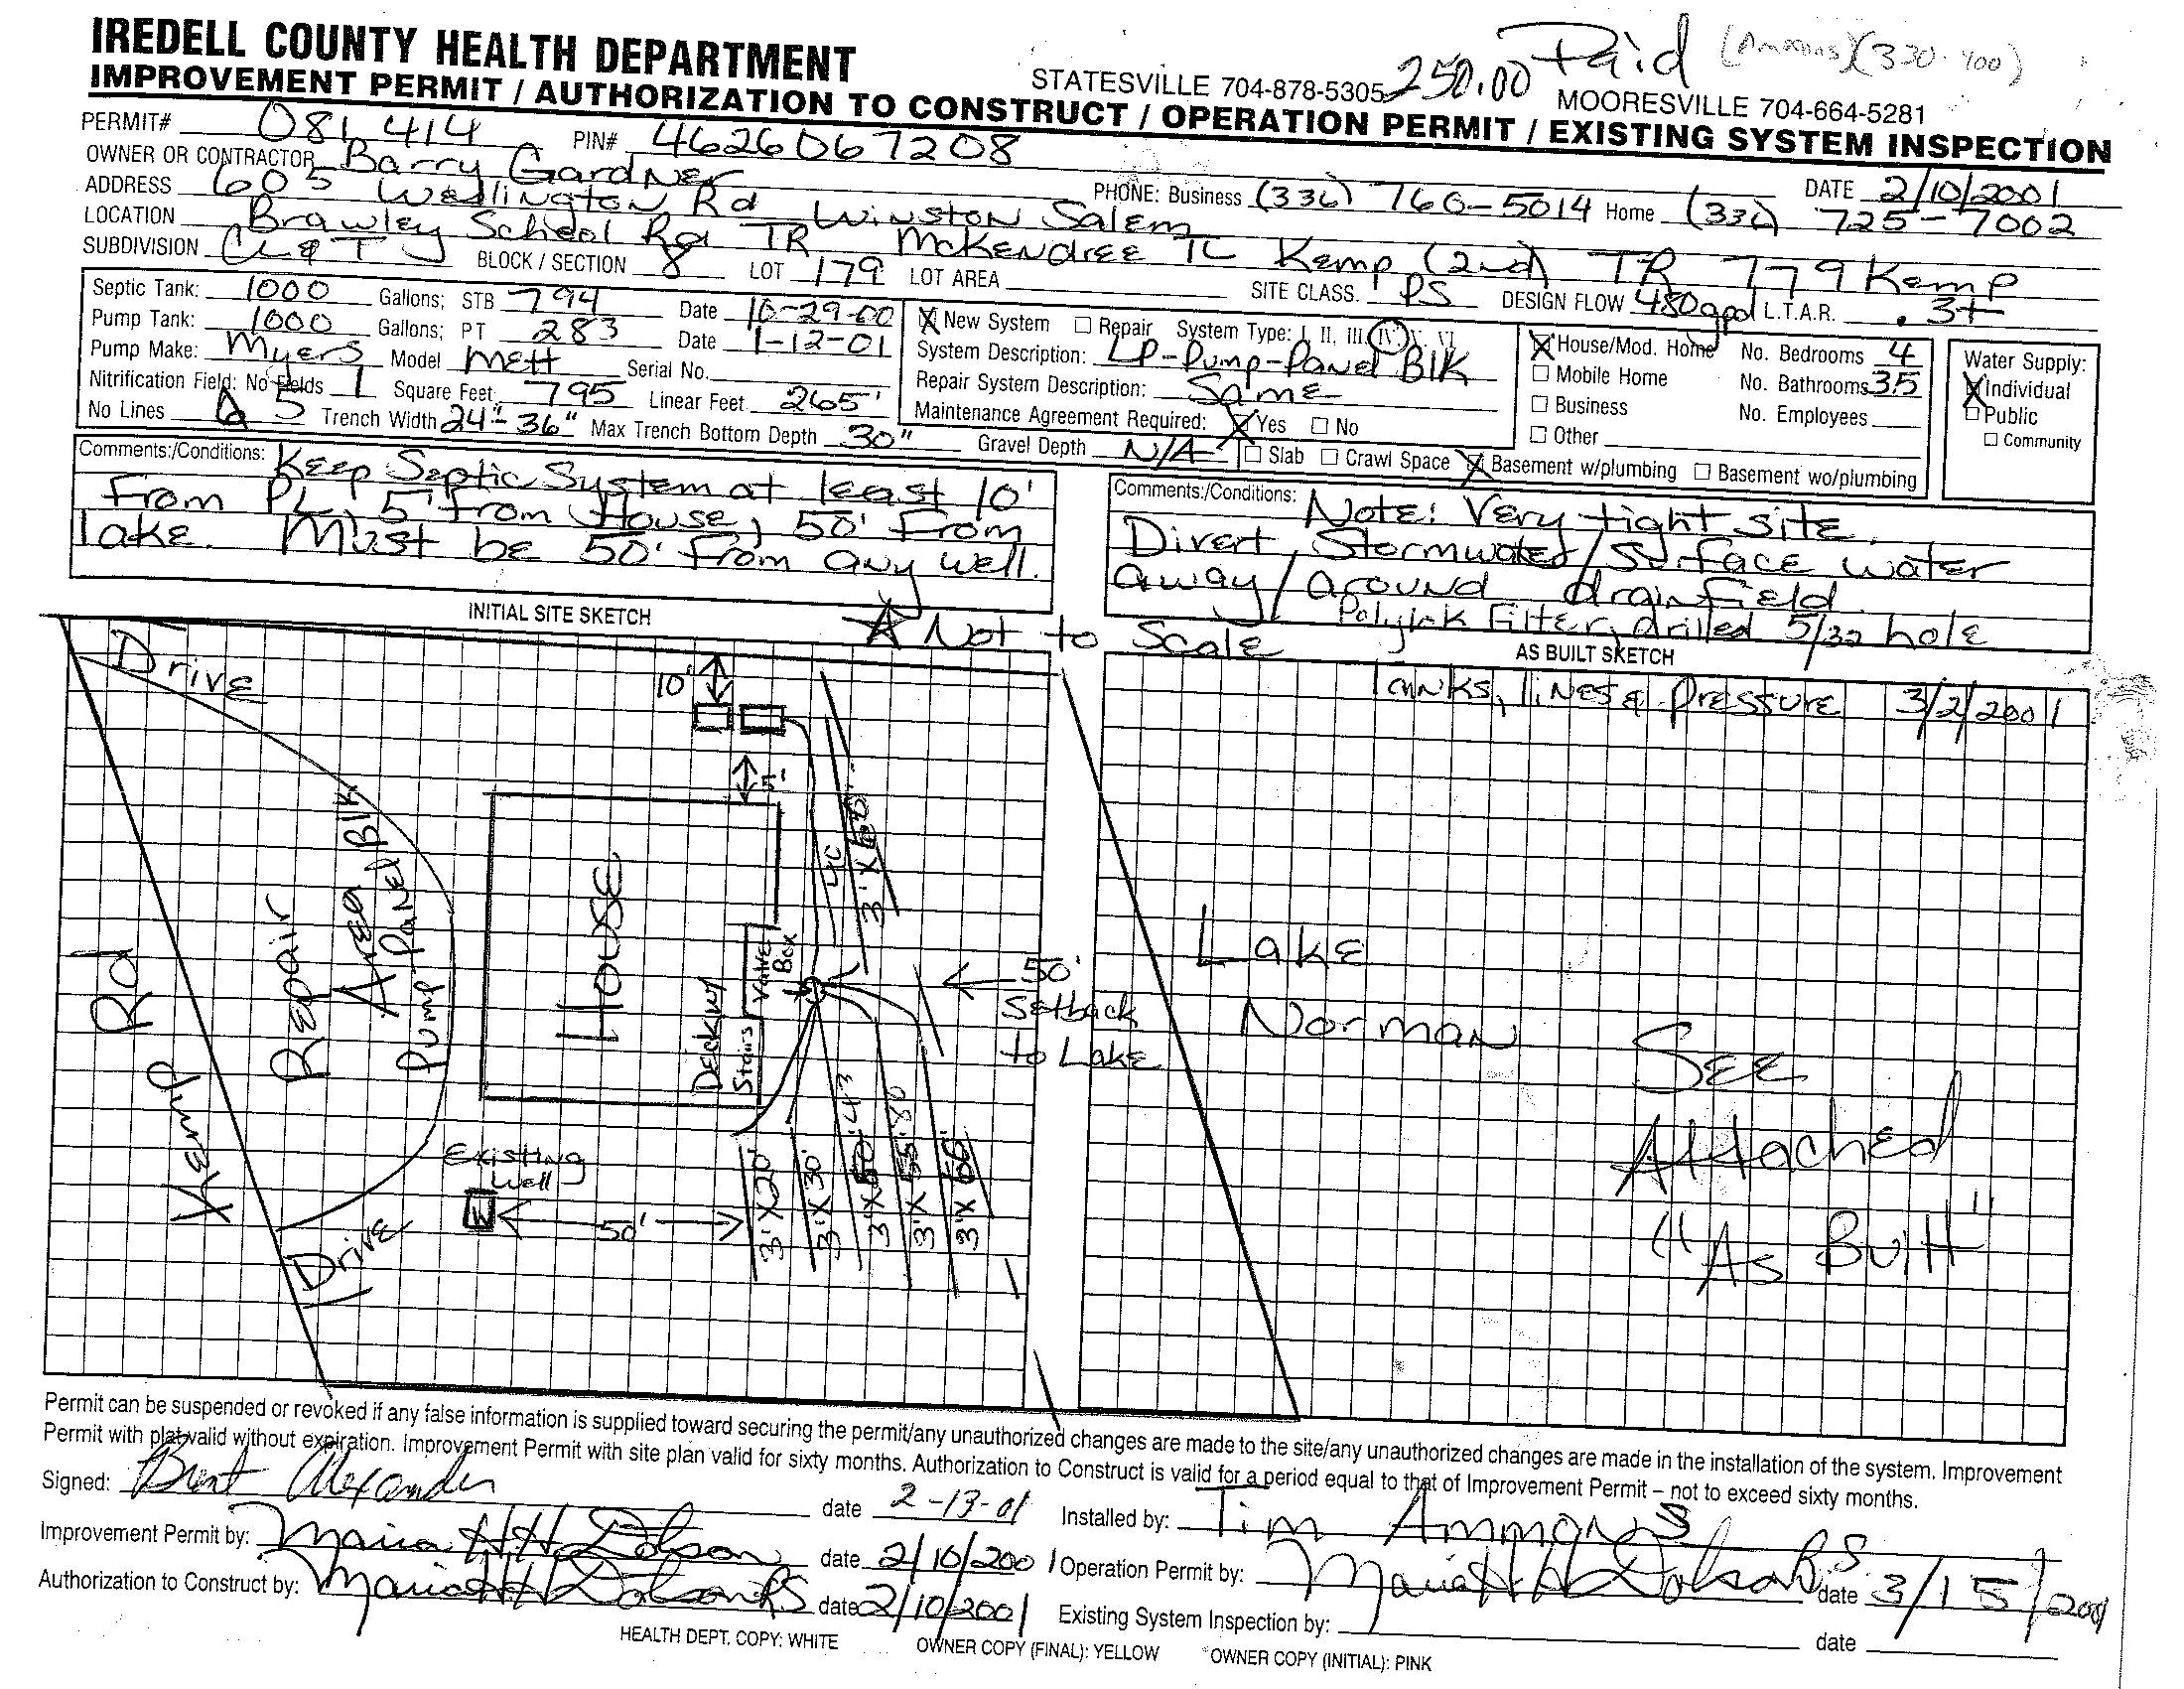 IREDELL COUNTY HEALTH DEPARTMENT
250.00 Paid (Ammons)(330-400)
STATESVILLE 704-878-5305 MOORESVILLE 704-664-5281
IMPROVEMENT PERMIT / AUTHORIZATION TO CONSTRUCT / OPERATION PERMIT / EXISTING SYSTEM INSPECTION
PERMIT# 081414 PIN# 4626067208
OWNER OR CONTRACTOR Barry Gardner PHONE: Business (336) 760-5014 Home (336) 725-7002 DATE 2/10/2001
ADDRESS 605 Wellington Rd Winston Salem
LOCATION Brawley School Rd TR McKendree TL Kemp (2nd) TR 779 Kemp
SUBDIVISION BLOCK / SECTION 8 LOT 179 LOT AREA SITE CLASS. PS DESIGN FLOW 480gpd L.T.A.R. .3+
Septic Tank: 1000 Gallons; STB 794 Date 10-29-00
Pump Tank: 1000 Gallons; PT 283 Date 1-12-01
Pump Make: Myers Model ME4 Serial No.
Nitrification Field: No Fields 1 Square Feet 795 Linear Feet 265'
No Lines 5 Trench Width 24"-36" Max Trench Bottom Depth 30" Gravel Depth N/A
X New System Repair System Type: I, II, III, IV, V, VI
System Description: LP-Pump-Panel Blk
Repair System Description: Same
Maintenance Agreement Required: X Yes No
Slab Crawl Space X Basement w/plumbing Basement wo/plumbing
X House/Mod. Home No. Bedrooms 4
Mobile Home No. Bathrooms 3.5
Business No. Employees
Other
Water Supply:
X Individual
Public
Community
Comments:/Conditions: Keep Septic System at least 10'
From PL, 5' From House, 50' From
lake. Must be 50' From any well.
Comments:/Conditions: Note: Very tight site.
Divert Stormwater/surface water
away/around drainfield.
Polylok Filter, drilled 5/32 hole
INITIAL SITE SKETCH
Not to Scale
AS BUILT SKETCH
Tanks, lines & Pressure 3/2/2001
Drive
10'
5'
Repair
Area
Pump Panel Blk
HOUSE
Decking
Stairs
Valve
Box
40
3' X 60'
50'
Setback
to Lake
Kemp Rd
Existing
Well
W
50'
3' X 20'
3' X 30'
43
3' X
80
3' X 55'
3' X 66'
Drive
Lake
Norman
See
Attached
"As Built"
Permit can be suspended or revoked if any false information is supplied toward securing the permit/any unauthorized changes are made to the site/any unauthorized changes are made in the installation of the system. Improvement
Permit with plat valid without expiration. Improvement Permit with site plan valid for sixty months. Authorization to Construct is valid for a period equal to that of Improvement Permit – not to exceed sixty months.
Signed: Brent Alexander date 2-13-01 Installed by: Tim Ammons
Improvement Permit by: Maria H H Dobson date 2/10/2001 Operation Permit by: Maria H H Dobson RS date 3/15/2001
Authorization to Construct by: Maria H H Dobson RS date 2/10/2001 Existing System Inspection by: date
HEALTH DEPT. COPY: WHITE OWNER COPY (FINAL): YELLOW OWNER COPY (INITIAL): PINK